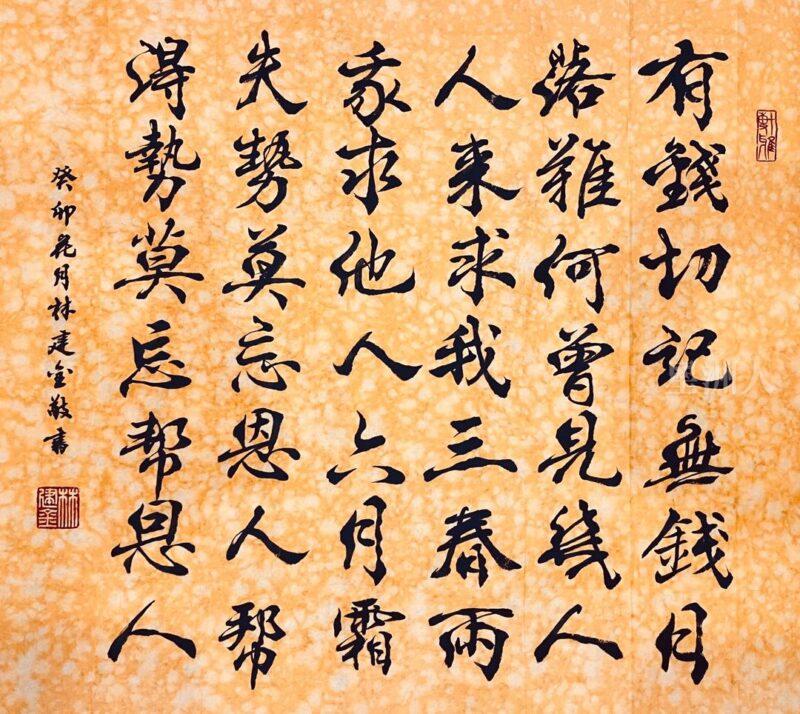 有錢切記無錢日
落難何曾見幾人
人来求我三春雨
我求他人六月霜
失勢莫忘恩人帮
得勢莫忘帮恩人
癸卯花月林建金敬書
林建金